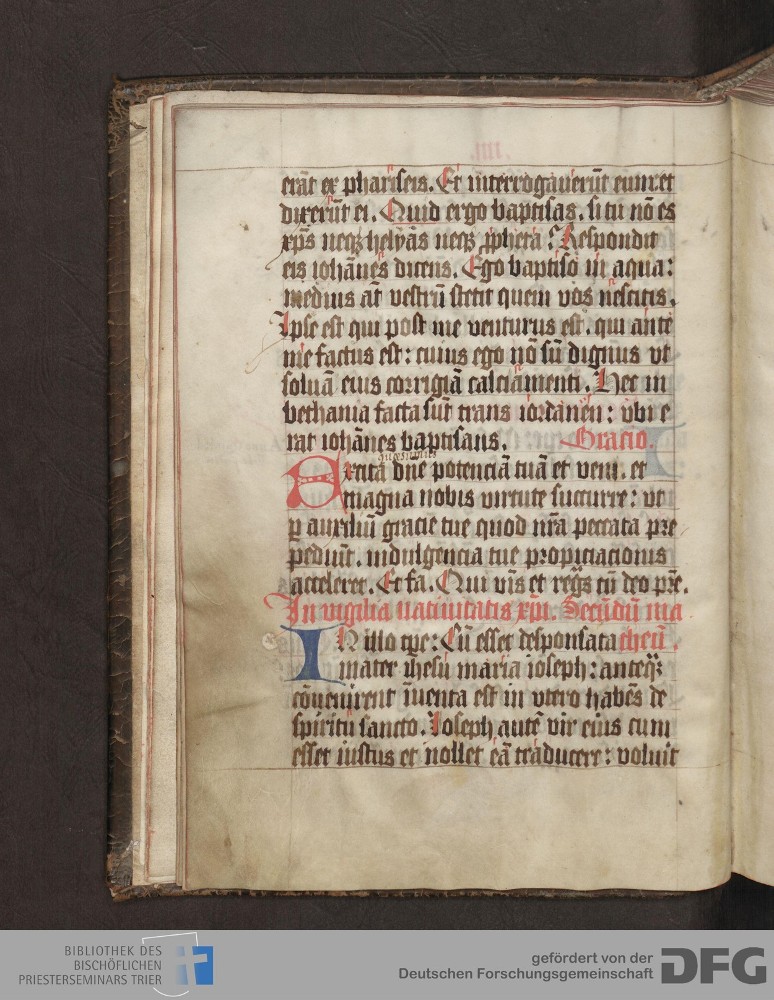 .iiii.
erāt ex phariseis. Et interrogauerūt eum: et
dixerūt ei. Quid ergo baptisas. si tu nō es
xp̄s neqꝫ helyās neqꝫ ꝓpheta? Respondit
eis iohānes dicens. Ego baptiso in aqua:
medius āt vestrū stetit quem vos nescitis.
Ipse est qui post me venturus est. qui ante
me factus est: cuius ego nō sū dignus vt
soluā eius corrigiā calciamenti. Hec in
bethania facta sūt trans iordanen: vbi e
rat iohānes baptisans. Oracio.
quesumus
Excita dn̄e potenciā tuā et veni. et
magna nobis virtute succurre: vt
ꝑ auxiliū gracie tue quod nr̄a peccata pre
pediūt. indulgencia tue propiciacionis
acceleret. Et fa. Qui viūs et regn̄s cū deo pr̄e.
In vigilia natiuitatis xp̄i. Secūdū ma
IN illo tp̄re: Cū esset desponsata theū.
mater ihesu maria ioseph: anteqꝫ
cōuenirent īuenta est in vtero habēs de
spiritu sancto. Ioseph autē vir eius cum
esset iustus et nollet eā traducere: voluit
BIBLIOTHEK DES
BISCHÖFLICHEN
PRIESTERSEMINARS TRIER
gefördert von der
Deutschen Forschungsgemeinschaft
DFG